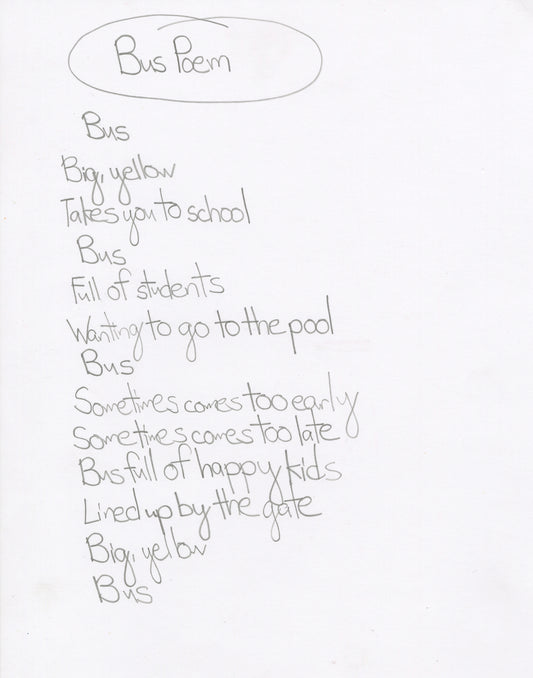 Bus Poem
Bus
Big, yellow
Takes you to school
Bus
Full of students
Wanting to go to the pool
Bus
Sometimes comes too early
Sometimes comes too late
Bus full of happy kids
Lined up by the gate
Big, yellow
Bus